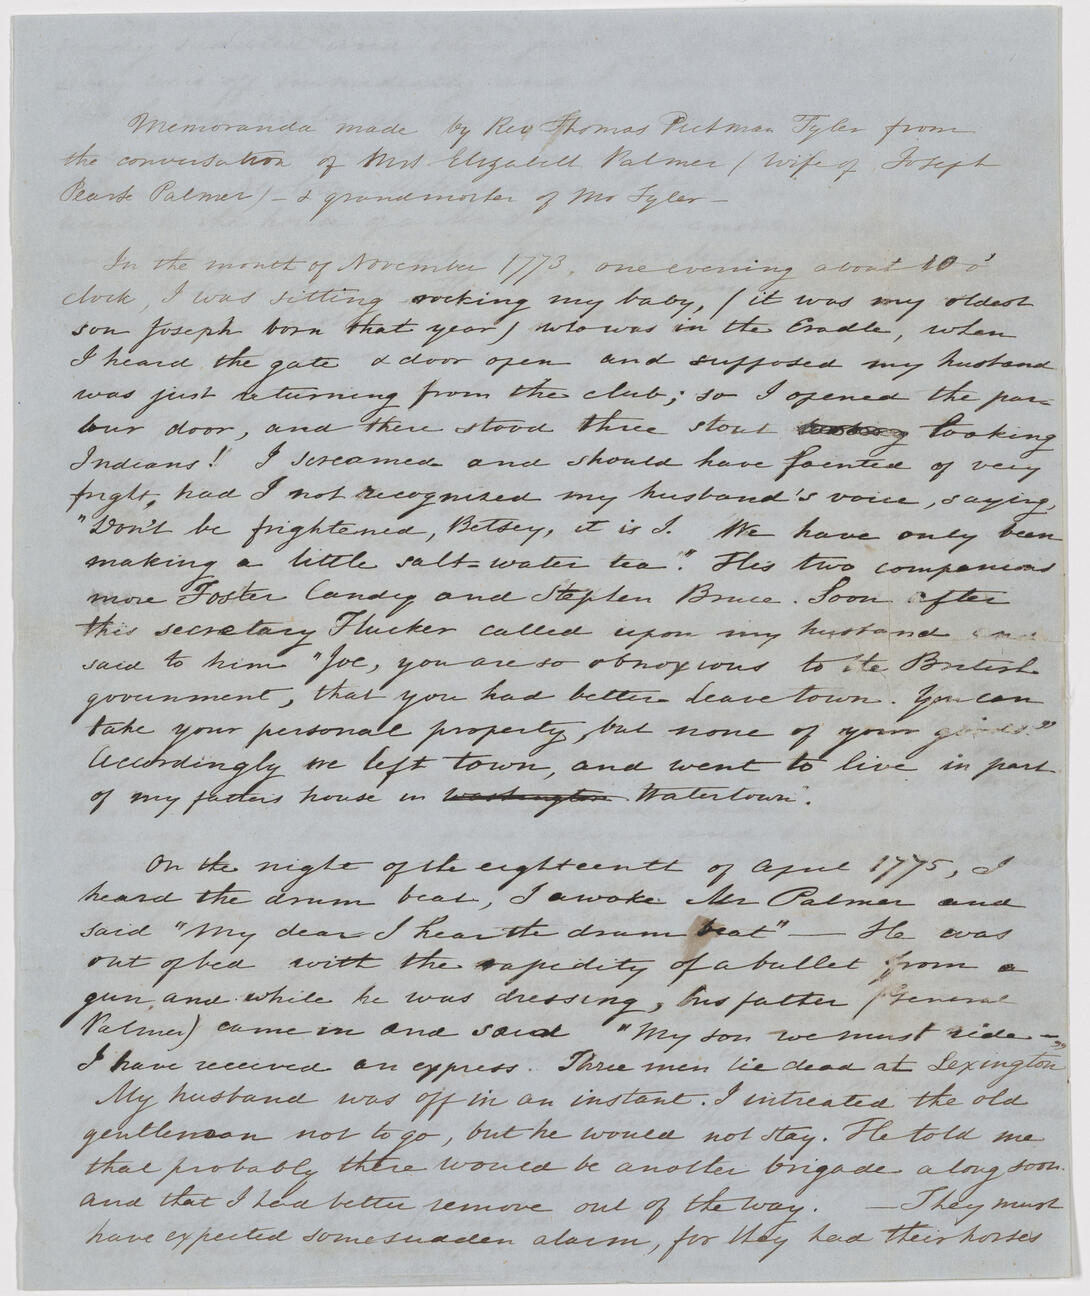 Memoranda made by Rev Thomas Pitman Tyler from
the conversation of Mrs Elizabeth Palmer (wife of Joseph
Pearse Palmer) — & grandmother of Mr Tyler —
In the month of November 1773, one evening about 10 o'
clock, I was sitting rocking my baby, (it was my oldest
son Joseph born that year) who was in the Cradle, when
I heard the gate & door open and supposed my husband
was just returning from the club; so I opened the par-
lour door, and there stood three stout looking
Indians! I screamed and should have fainted of very
fright, had I not recognised my husband's voice, saying,
"Don't be frightened, Betsey, it is I. We have only been
making a little salt=water tea". His two companions
were Foster Condy and Stephen Bruce. Soon after
this secretary Flucker called upon my husband and
said to him "Joe, you are so obnoxious to the British
government, that you had better leave town. You can
take your personal property, but none of your goods."
Accordingly we left town, and went to live in part
of my father's house in Washington Watertown".
On the night of the eighteenth of April 1775, I
heard the drum beat, I awoke Mr Palmer and
said "My dear I hear the drum beat" — He was
out of bed with the rapidity of a bullet from a
gun, and while he was dressing, his father (General
Palmer) came in and said "My son we must ride —
I have received an express. Three men lie dead at Lexington"
My husband was off in an instant. I intreated the old
gentleman not to go, but he would not stay. He told me
that probably there would be another brigade along soon
and that I had better remove out of the way. — They must
have expected some sudden alarm, for they had their horses